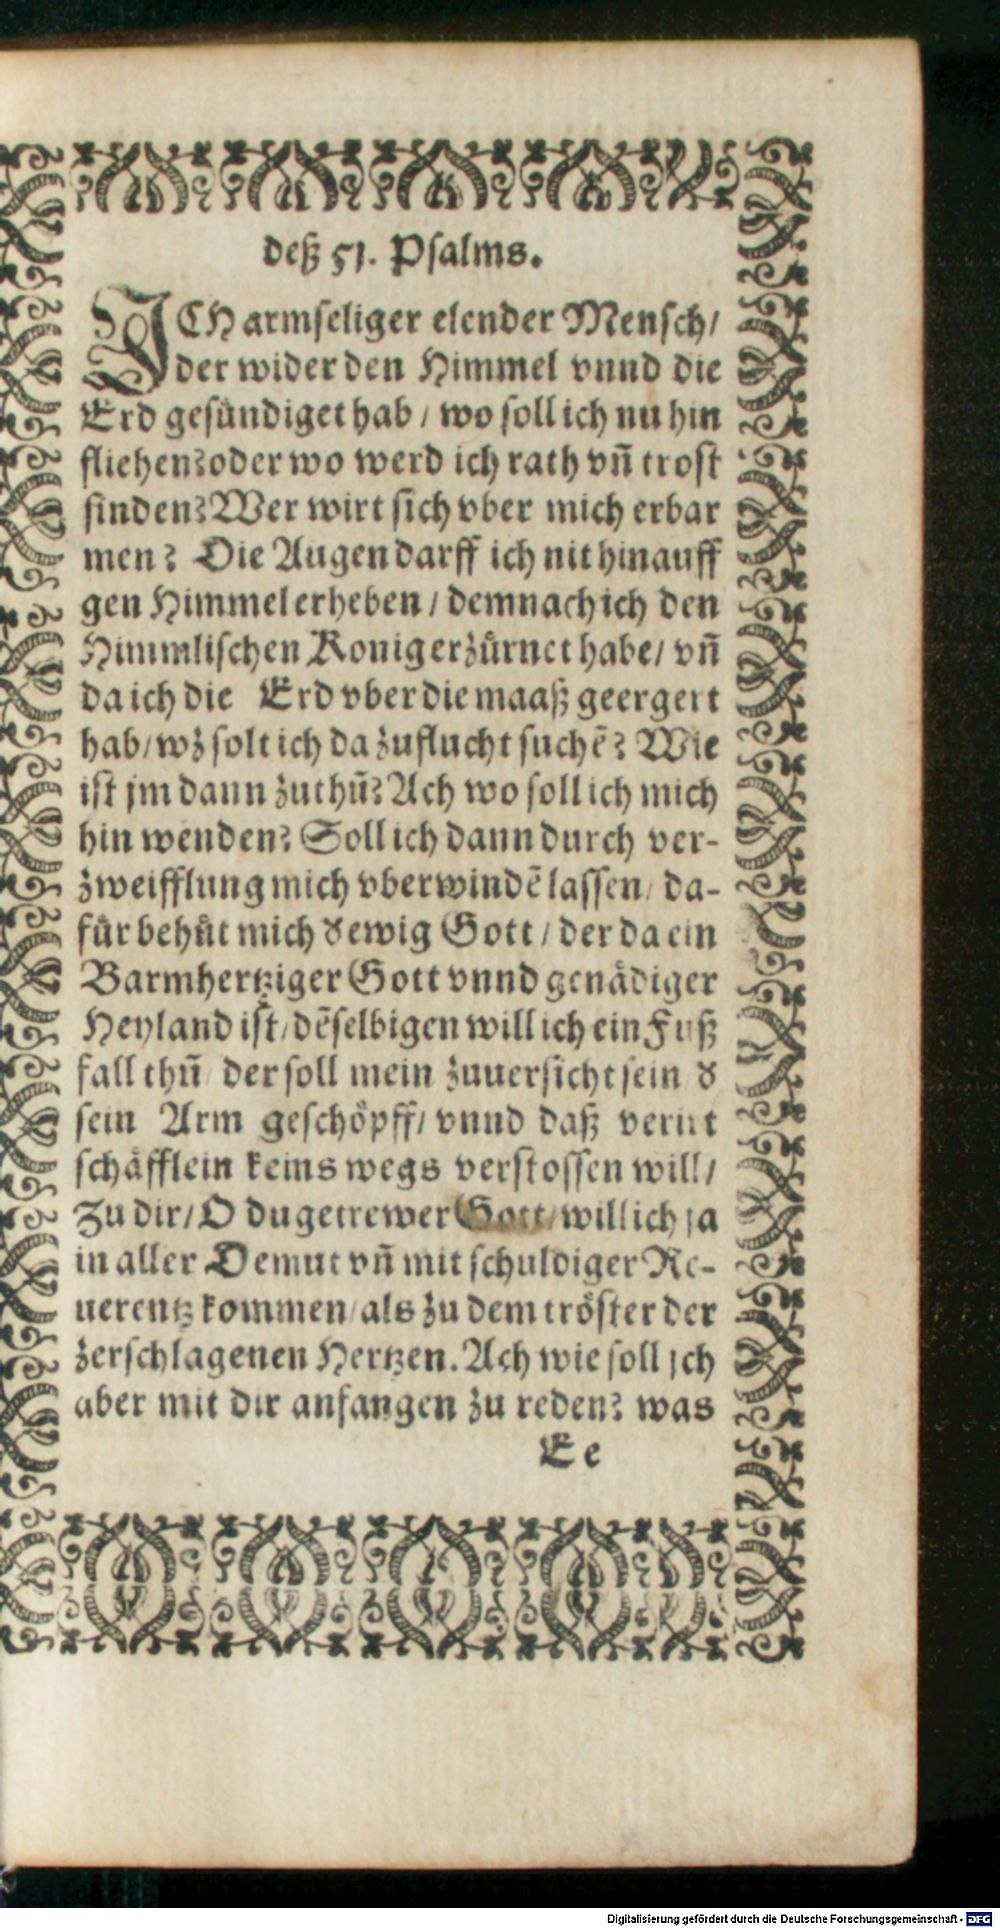 deß 51. Psalms.
ICH armseliger elender Mensch/
der wider den Himmel vnnd die
Erd gesündiget hab / wo soll ich nu hin
fliehen? oder wo werd ich rath vñ trost
finden? Wer wirt sich vber mich erbar
men? Die Augen darff ich nit hinauff
gen Himmel erheben / demnach ich den
Himmlischen Konig erzürnet habe/ vñ
da ich die Erd vber die maaß geergert
hab/ wz solt ich da zuflucht suchẽ? Wie
ist jm dann zuthũ? Ach wo soll ich mich
hin wenden? Soll ich dann durch ver-
zweifflung mich vberwindẽ lassen/ da-
für behüt mich d ewig Gott / der da ein
Barmhertziger Gott vnnd genädiger
Heyland ist/ dẽselbigen will ich ein Fuß
fall thũ/ der soll mein zuuersicht sein d
sein Arm geschöpff/ vnnd daß verirt
schäfflein keins wegs verstossen will/
Zu dir/ O du getrewer Gott/ will ich ja
in aller Demut vñ mit schuldiger Re-
uerentz kommen/ als zu dem tröster der
zerschlagenen Hertzen. Ach wie soll jch
aber mit dir anfangen zu reden? was
Ee
Digitalisierung gefördert durch die Deutsche Forschungsgemeinschaft - DFG